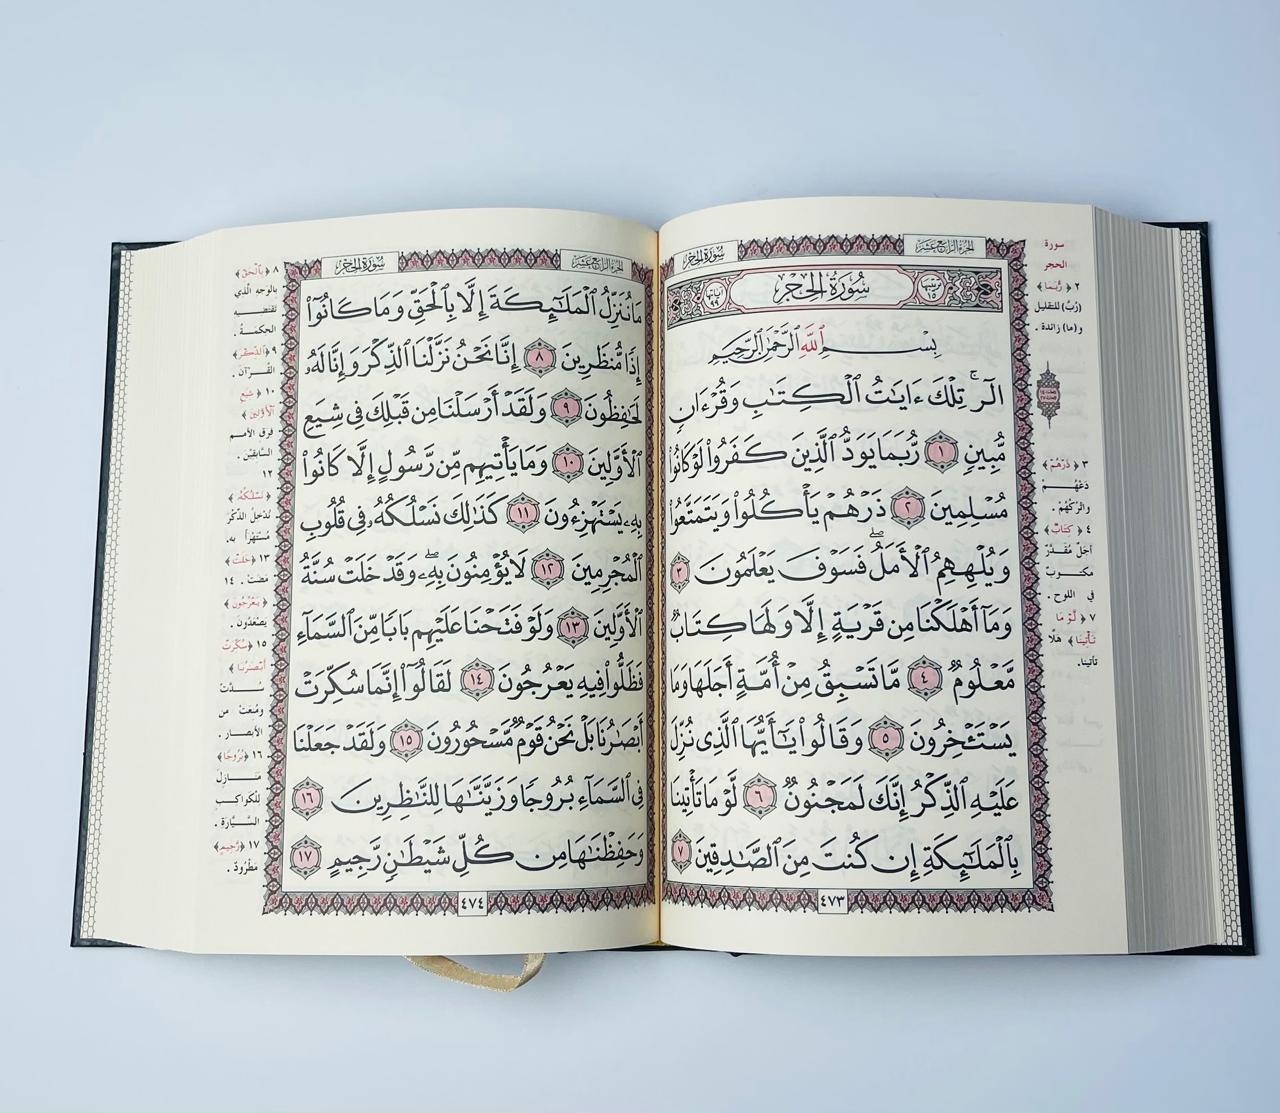 سورة الحجر
الجزء الرابع عشر
ترتيبها ١٥
سُورَةُ الحِجرِ
آياتها ٩٩
بِسْمِ ٱللَّهِ ٱلرَّحْمَٰنِ ٱلرَّحِيمِ
الٓرۚ تِلْكَ ءَايَٰتُ ٱلْكِتَٰبِ وَقُرْءَانٍ
مُّبِينٍ ١ رُّبَمَا يَوَدُّ ٱلَّذِينَ كَفَرُوا۟ لَوْ كَانُوا۟
مُسْلِمِينَ ٢ ذَرْهُمْ يَأْكُلُوا۟ وَيَتَمَتَّعُوا۟
وَيُلْهِهِمُ ٱلْأَمَلُۖ فَسَوْفَ يَعْلَمُونَ ٣
وَمَآ أَهْلَكْنَا مِن قَرْيَةٍ إِلَّا وَلَهَا كِتَابٌ
مَّعْلُومٌ ٤ مَّا تَسْبِقُ مِنْ أُمَّةٍ أَجَلَهَا وَمَا
يَسْتَـْٔخِرُونَ ٥ وَقَالُوا۟ يَٰٓأَيُّهَا ٱلَّذِى نُزِّلَ
عَلَيْهِ ٱلذِّكْرُ إِنَّكَ لَمَجْنُونٌ ٦ لَّوْ مَا تَأْتِينَا
بِٱلْمَلَٰٓئِكَةِ إِن كُنتَ مِنَ ٱلصَّٰدِقِينَ ٧
٤٧٣
سورة
الحجر
٢ ﴿رُّبَمَا﴾
(رُبَّ) للتقليل
و(ما) زائدة .
٣ ﴿ذَرْهُمْ﴾
دَعْهُمْ
واتركهُمْ .
٤ ﴿كِتَابٌ﴾
أجل مُقدَّرٌ
مكتوبٌ
في اللوح .
٧ ﴿لَّوْ مَا
تَأْتِينَا﴾ هَلَّا
تأتينا.
سورة الحجر
الجزء الرابع عشر
مَا نُنَزِّلُ ٱلْمَلَٰٓئِكَةَ إِلَّا بِٱلْحَقِّ وَمَا كَانُوٓا۟
إِذًا مُّنظَرِينَ ٨ إِنَّا نَحْنُ نَزَّلْنَا ٱلذِّكْرَ وَإِنَّا لَهُۥ
لَحَٰفِظُونَ ٩ وَلَقَدْ أَرْسَلْنَا مِن قَبْلِكَ فِى شِيَعِ
ٱلْأَوَّلِينَ ١٠ وَمَا يَأْتِيهِم مِّن رَّسُولٍ إِلَّا كَانُوا۟
بِهِۦ يَسْتَهْزِءُونَ ١١ كَذَٰلِكَ نَسْلُكُهُۥ فِى قُلُوبِ
ٱلْمُجْرِمِينَ ١٢ لَا يُؤْمِنُونَ بِهِۦۖ وَقَدْ خَلَتْ سُنَّةُ
ٱلْأَوَّلِينَ ١٣ وَلَوْ فَتَحْنَا عَلَيْهِم بَابًا مِّنَ ٱلسَّمَآءِ
فَظَلُّوا۟ فِيهِ يَعْرُجُونَ ١٤ لَقَالُوٓا۟ إِنَّمَا سُكِّرَتْ
أَبْصَٰرُنَا بَلْ نَحْنُ قَوْمٌ مَّسْحُورُونَ ١٥ وَلَقَدْ جَعَلْنَا
فِى ٱلسَّمَآءِ بُرُوجًا وَزَيَّنَّٰهَا لِلنَّٰظِرِينَ ١٦
وَحَفِظْنَٰهَا مِن كُلِّ شَيْطَٰنٍ رَّجِيمٍ ١٧
٤٧٤
٨ ﴿بِالْحَقِّ﴾
بالوجه الَّذي
تقتضيه
الحكمةُ .
٩ ﴿الذِّكْرَ﴾
القُرْآن .
١٠ ﴿شِيَعِ
الأَوَّلِينَ﴾
فرق الأمم
السَّابقين .
١٢
﴿نَسْلُكُهُ﴾
نُدْخلُ الذِّكْرَ
مُسْتهْزأً به.
١٣ ﴿خَلَتْ﴾
مضتْ . ١٤
﴿يَعْرُجُونَ﴾
يصْعَدُون .
١٥ ﴿سُكِّرَتْ
أَبْصَارُنَا﴾
سُدَّتْ
ومُنعَتْ من
الأبصار .
١٦ ﴿بُرُوجًا﴾
منازلَ
للكواكب
السَّيَّارة .
١٧ ﴿رَّجِيمٍ﴾
مطْرُودٌ .